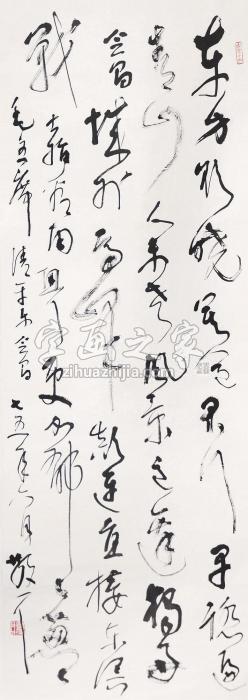 东方欲晓莫道君行早踏遍
青山人未老风景这边独好
会昌城外高峰颠连直接东溟
战士指看南粤更加郁郁葱葱
毛主席清平乐会昌七五年六月
字画之家
zihuazhijia.com